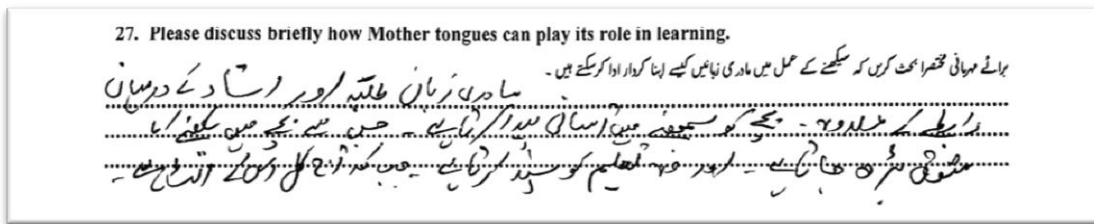 27. Please discuss briefly how Mother tongues can play its role in learning.
برائے مہربانی مختصرا بحث کریں کہ سیکھنے کے عمل میں مادری زبانیں کیسے اپنا کردار ادا کر سکتی ہیں۔
مادری زبان طلبہ اور استاد کے درمیان
رابطے کے علاوہ۔ بچے کو سمجھنے میں آسانی پیدا کرتا ہے۔ جس سے بچے میں سیکھنے کا
بڑھ جاتا ہے۔ اور وہ تعلیم کو پسند کرتا ہے۔ جب کہ آج کل اس کے الٹ ہے۔